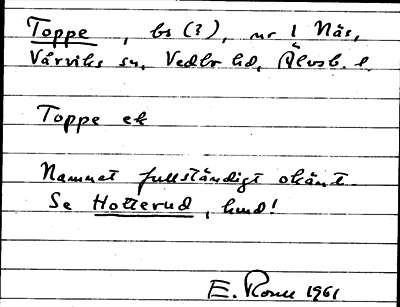 Toppe, bs (?), nr 1 Näs,
Vårviks sn, Vedbo hd, Älvsb. l.
Toppe ek
Namnet fullständigt okänt.
Se Hotterud, hmd!
E. Rosell 1961